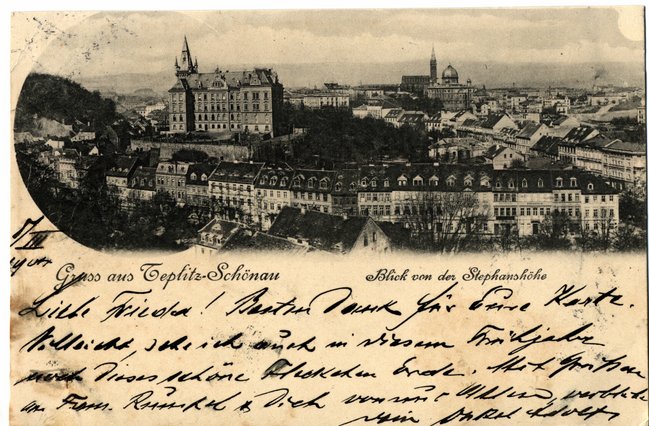 7/III
Gruss aus Teplitz-Schönau
Blick von der Stephanshöhe
Liebe Frieda! Besten Dank für Eure Karte.
Vielleicht sehe ich auch in diesem Frühjahr
noch dieses schöne Fleckchen Erde. Mit Grüßen
an Fam. Runkel & Dich von uns Allen, verbleibe
Dein Onkel Adolf